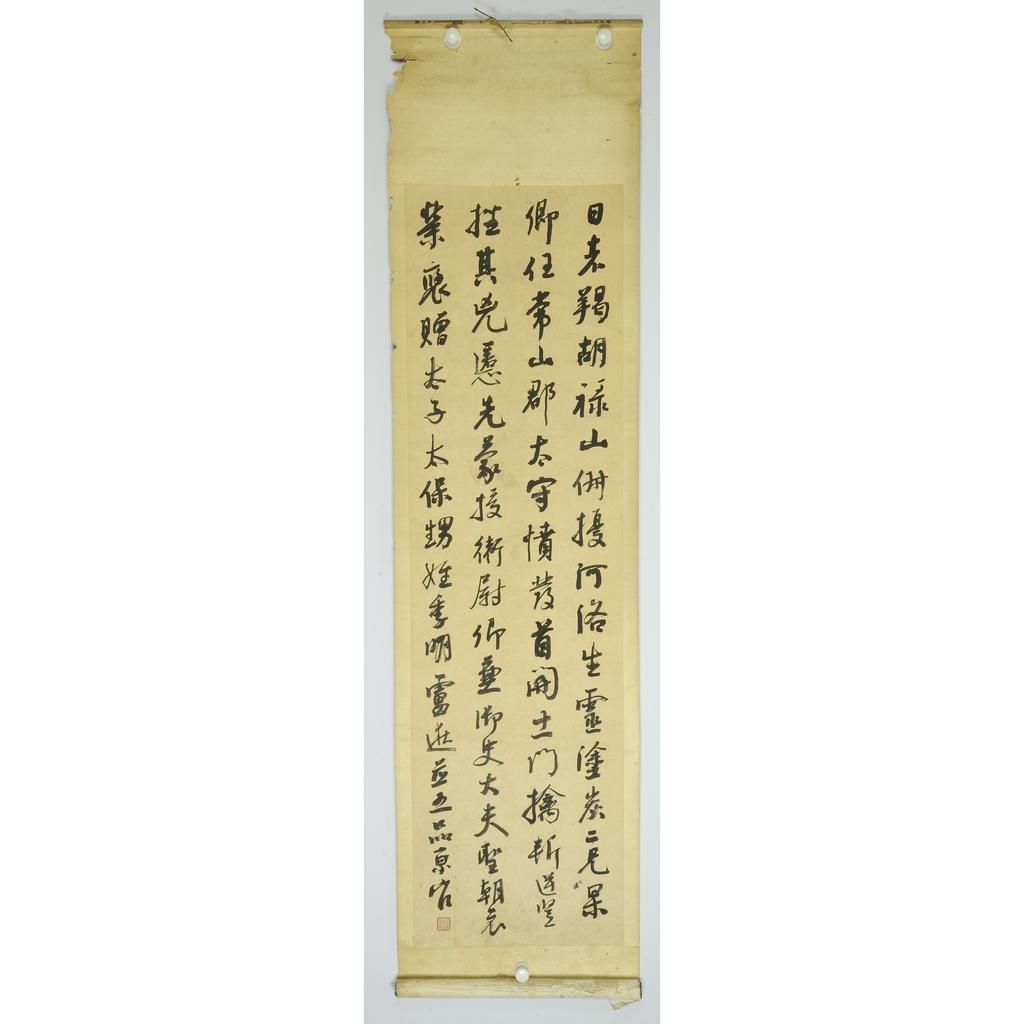 日者羯胡祿山俶擾河洛生靈塗炭二兄杲
卿任常山郡太守憤發首開土門擒斬逆豎
挫其兇慝先蒙授衛尉卿兼御史大夫聖朝哀
榮褒贈太子太保甥姪季明盧逖並五品京官